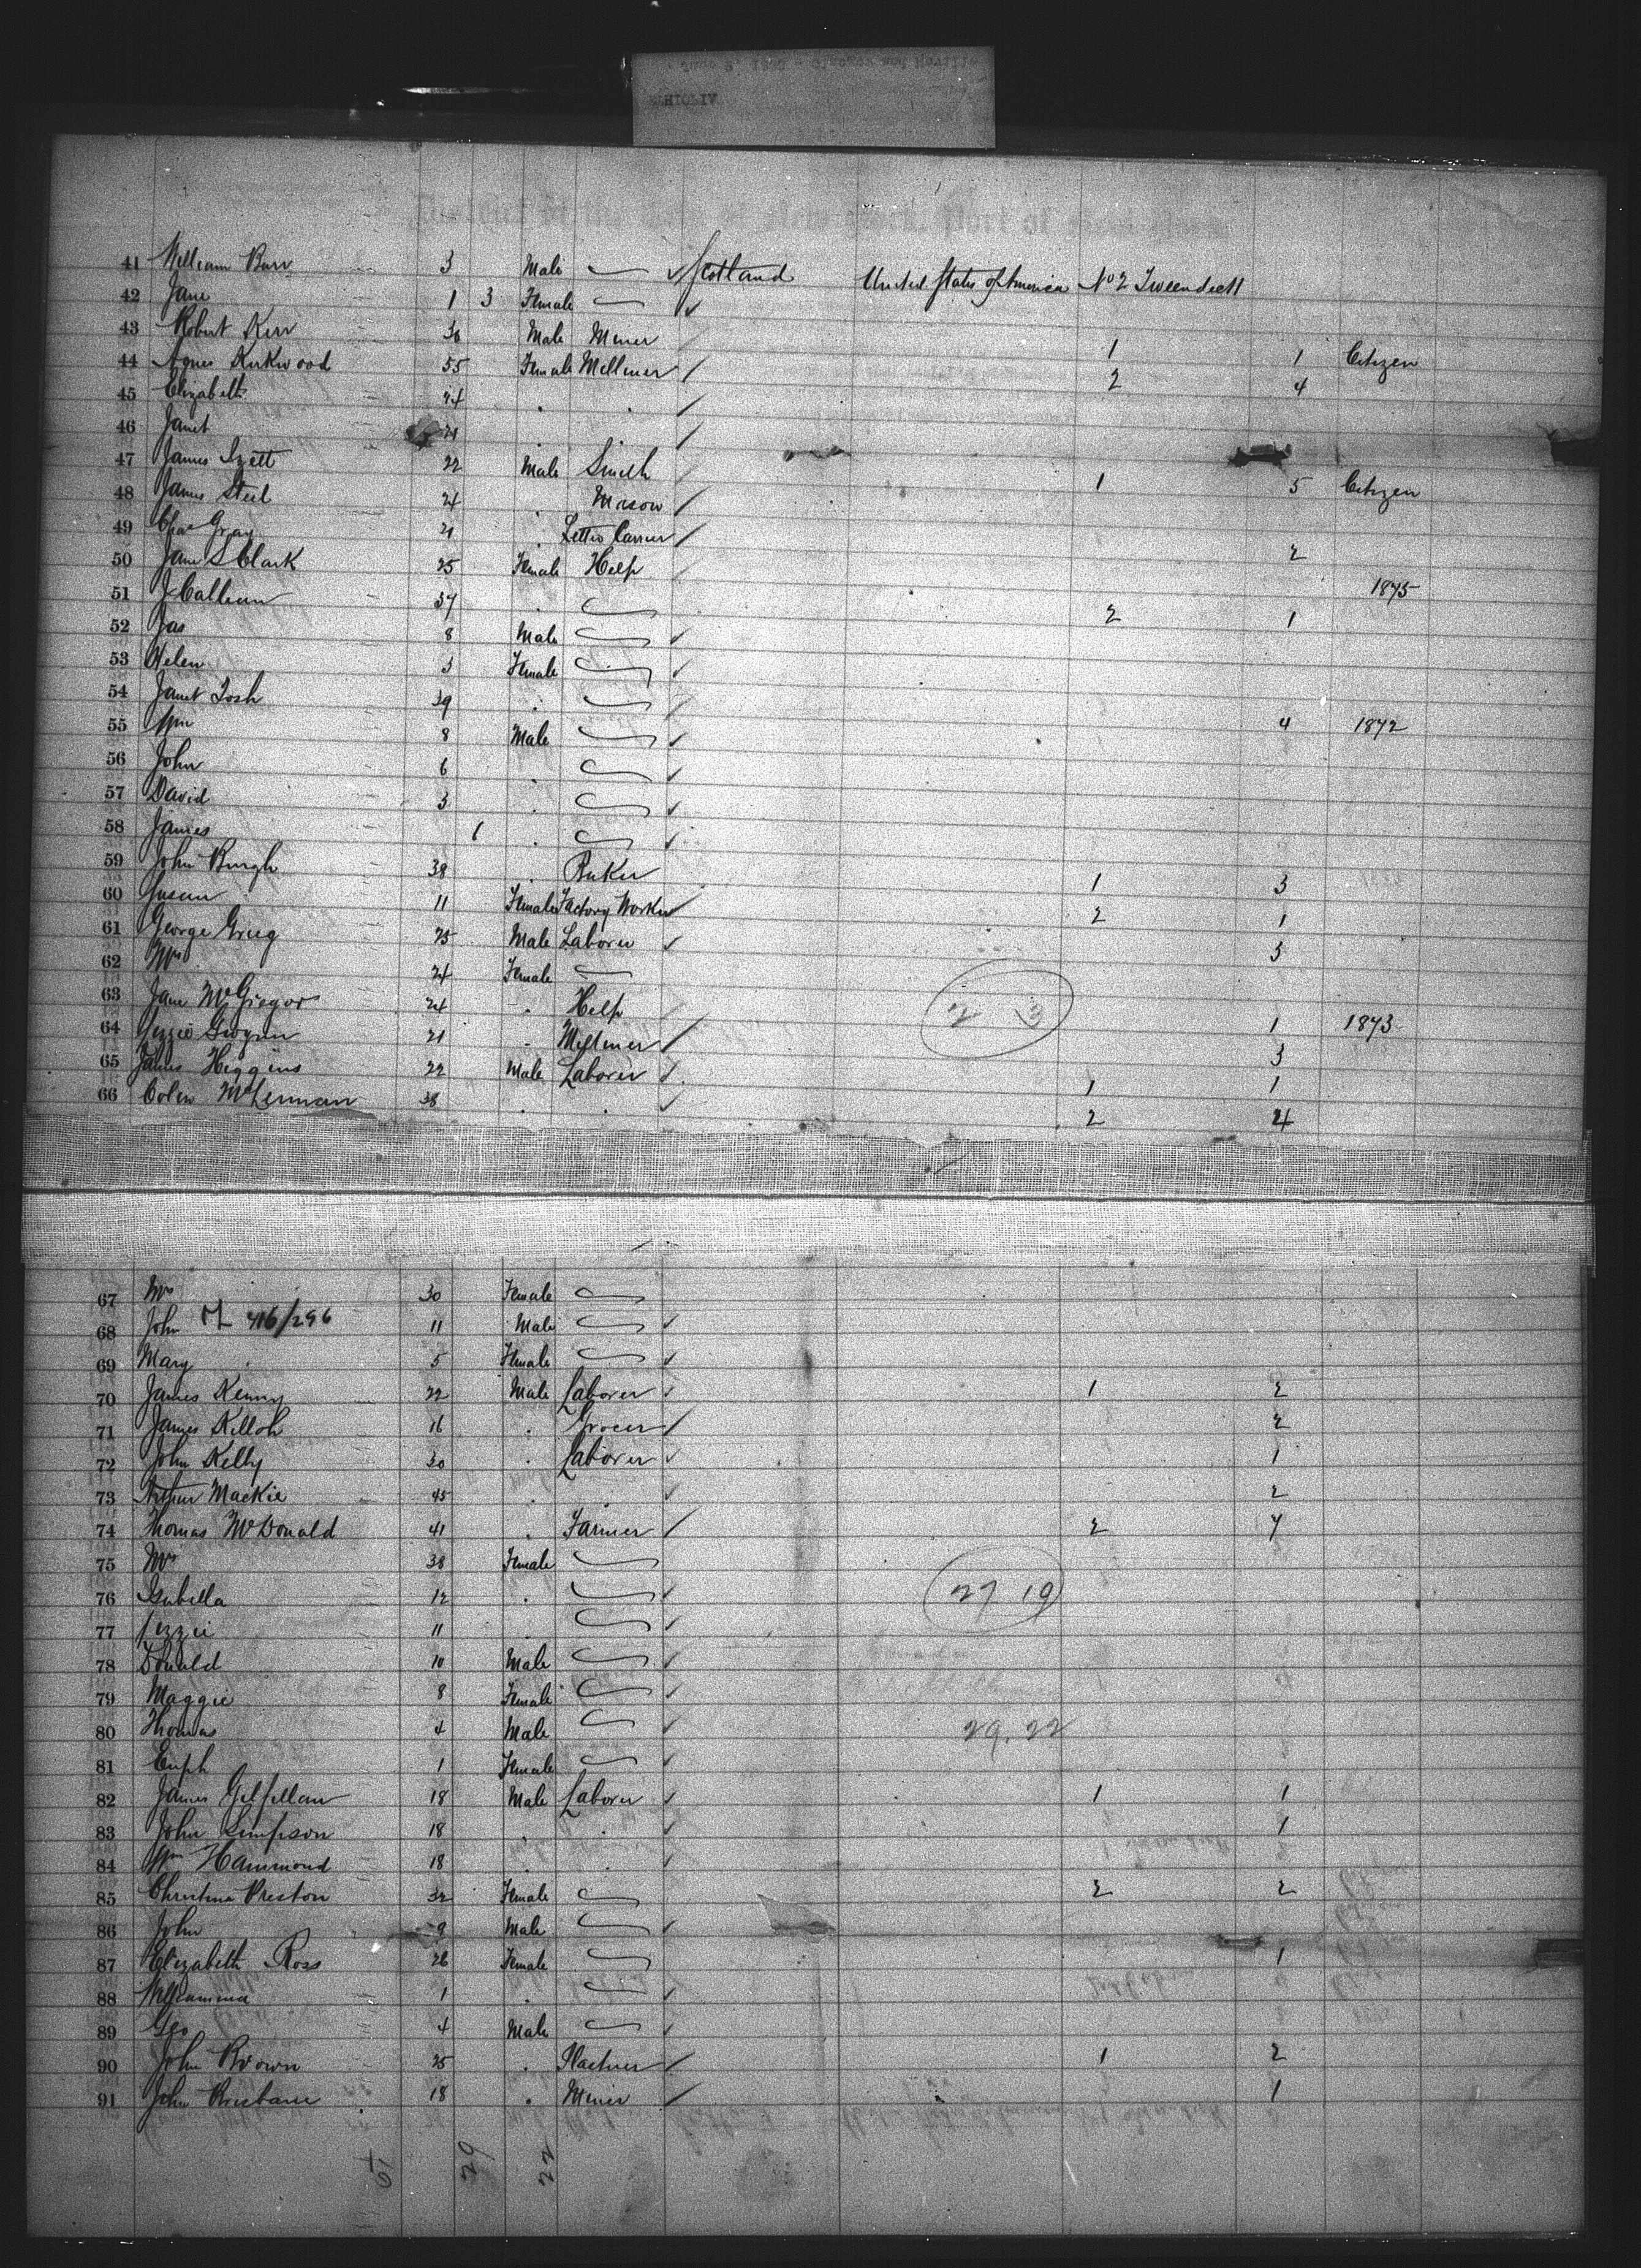 41 William Barr 3 Male Scotland United States of America No 2 Tweendeck
42 Jane 1 3 Female
43 Robert Kerr 36 Male Miner 1 1 Citizen
44 Agnes Kirkwood 55 Female Milliner 2 4
45 Elizabeth 24
46 Janet 21
47 James Izett 22 Male Smith 1 5 Citizen
48 James Steel 24 Mason
49 Chas Gray 21 Letter Carrier 2
50 Jane S Clark 25 Female Help 1875
51 J Calhoun 37 2 1
52 Jas 8 Male
53 Helen 3 Female
54 Janet Tosh 39 4 1872
55 Wm 8 Male
56 John 6
57 David 3
58 James 1
59 John Burgh 38 1 3
60 Susan 11 Female Factory Worker 2 1
61 George Greig 25 Male Laborer 3
62 Mrs 24 Female
63 Jane McGregor 24 Help 2 3 1 1873
64 Lizzie 21 Milliner 3
65 James Higgins 22 Male Laborer 1 1
66 Colin McLennan 38 2 4
67 Mrs 30 Female
68 John 416/296 11 Male
69 Mary 5 Female
70 James Kenny 22 Male Laborer 1 2
71 James Killoh 16 Grocer 2
72 John Kelly 30 Laborer 1
73 Arthur Mackie 45 2
74 Thomas McDonald 41 Farmer 2 7
75 Mrs 38 Female
76 Isabella 12 27 19
77 Lizzie 11
78 Donald 10 Male
79 Maggie 8 Female
80 Thomas 4 Male 29.22
81 Euph 1 Female
82 James Gilfillan 18 Male Laborer 1 1
83 John Simpson 18 1
84 Wm Hammond 18
85 Christina Preston 32 Female 2 2
86 John 9 Male
87 Elizabeth Ross 26 Female 1
88 Williamina 1
89 Geo 4 Male
90 John Brown 25 1 2
91 John Brisbane 18 Miner 1
29 22